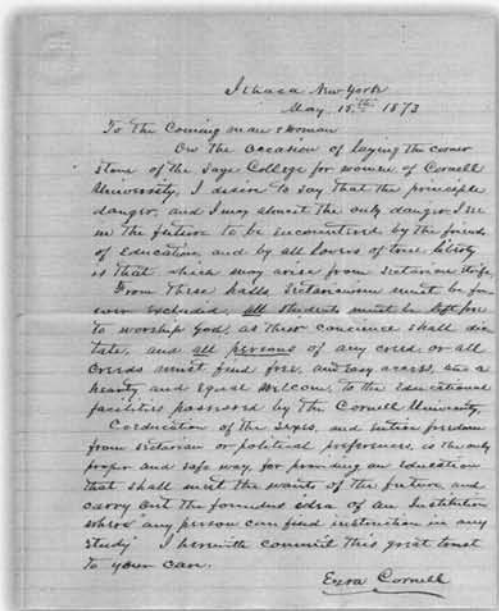 Ithaca New York
May 15th 1873
To the Coming man & woman
On the occasion of laying the corner
stone of the Sage College for women of Cornell
University, I desire to say that the principle
danger, and I may almost say the only danger I see
in the future to be encountered by the friends
of education, and by all lovers of true liberty
is that which may arise from sectarian strife.
From these halls, sectarianism must be for
ever excluded, all students must be left free
to worship God, as their concience shall dic
tate, and all persons of any creed or all
creeds must find free, and easy access, and a
hearty and equal welcome, to the educational
facilities possessed by the Cornell University.
Coeducation of the sexes, and entire freedom
from sectarian or political preferences, is the only
proper and safe way, for providing an education
that shall meet the wants of the future, and
carry out the founders idea of an Institution
where "any person can find instruction in any
study." I herewith commit this great trust
to your care.
Ezra Cornell